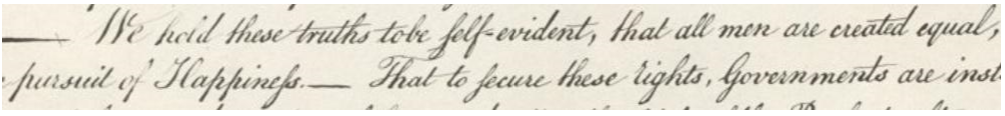 We hold these truths to be ſelf-evident, that all men are created equal,
pursuit of Happineſs.— That to ſecure these rights, Governments are inst